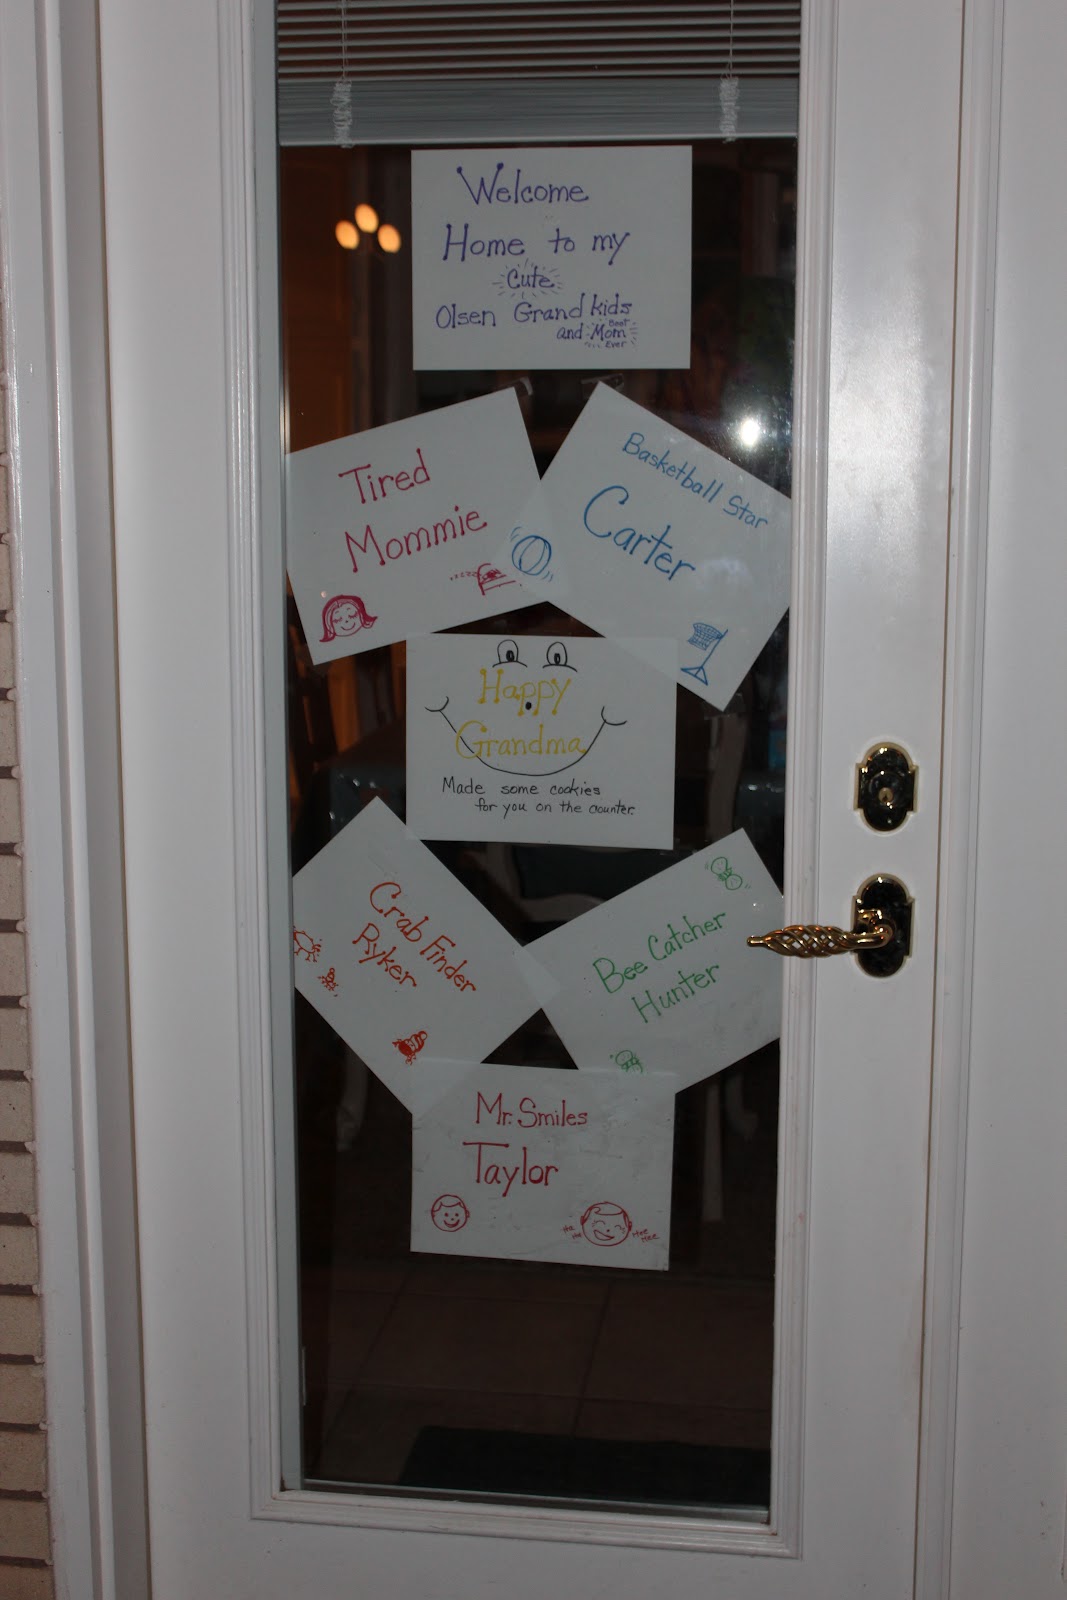 Welcome
Home to my
Cute
Olsen Grand kids
and Best Mom Ever
Tired
Mommie
Basketball Star
Carter
Happy
Grandma
Made some cookies
for you on the counter.
Crab Finder
Ryker
Bee Catcher
Hunter
Mr. Smiles
Taylor